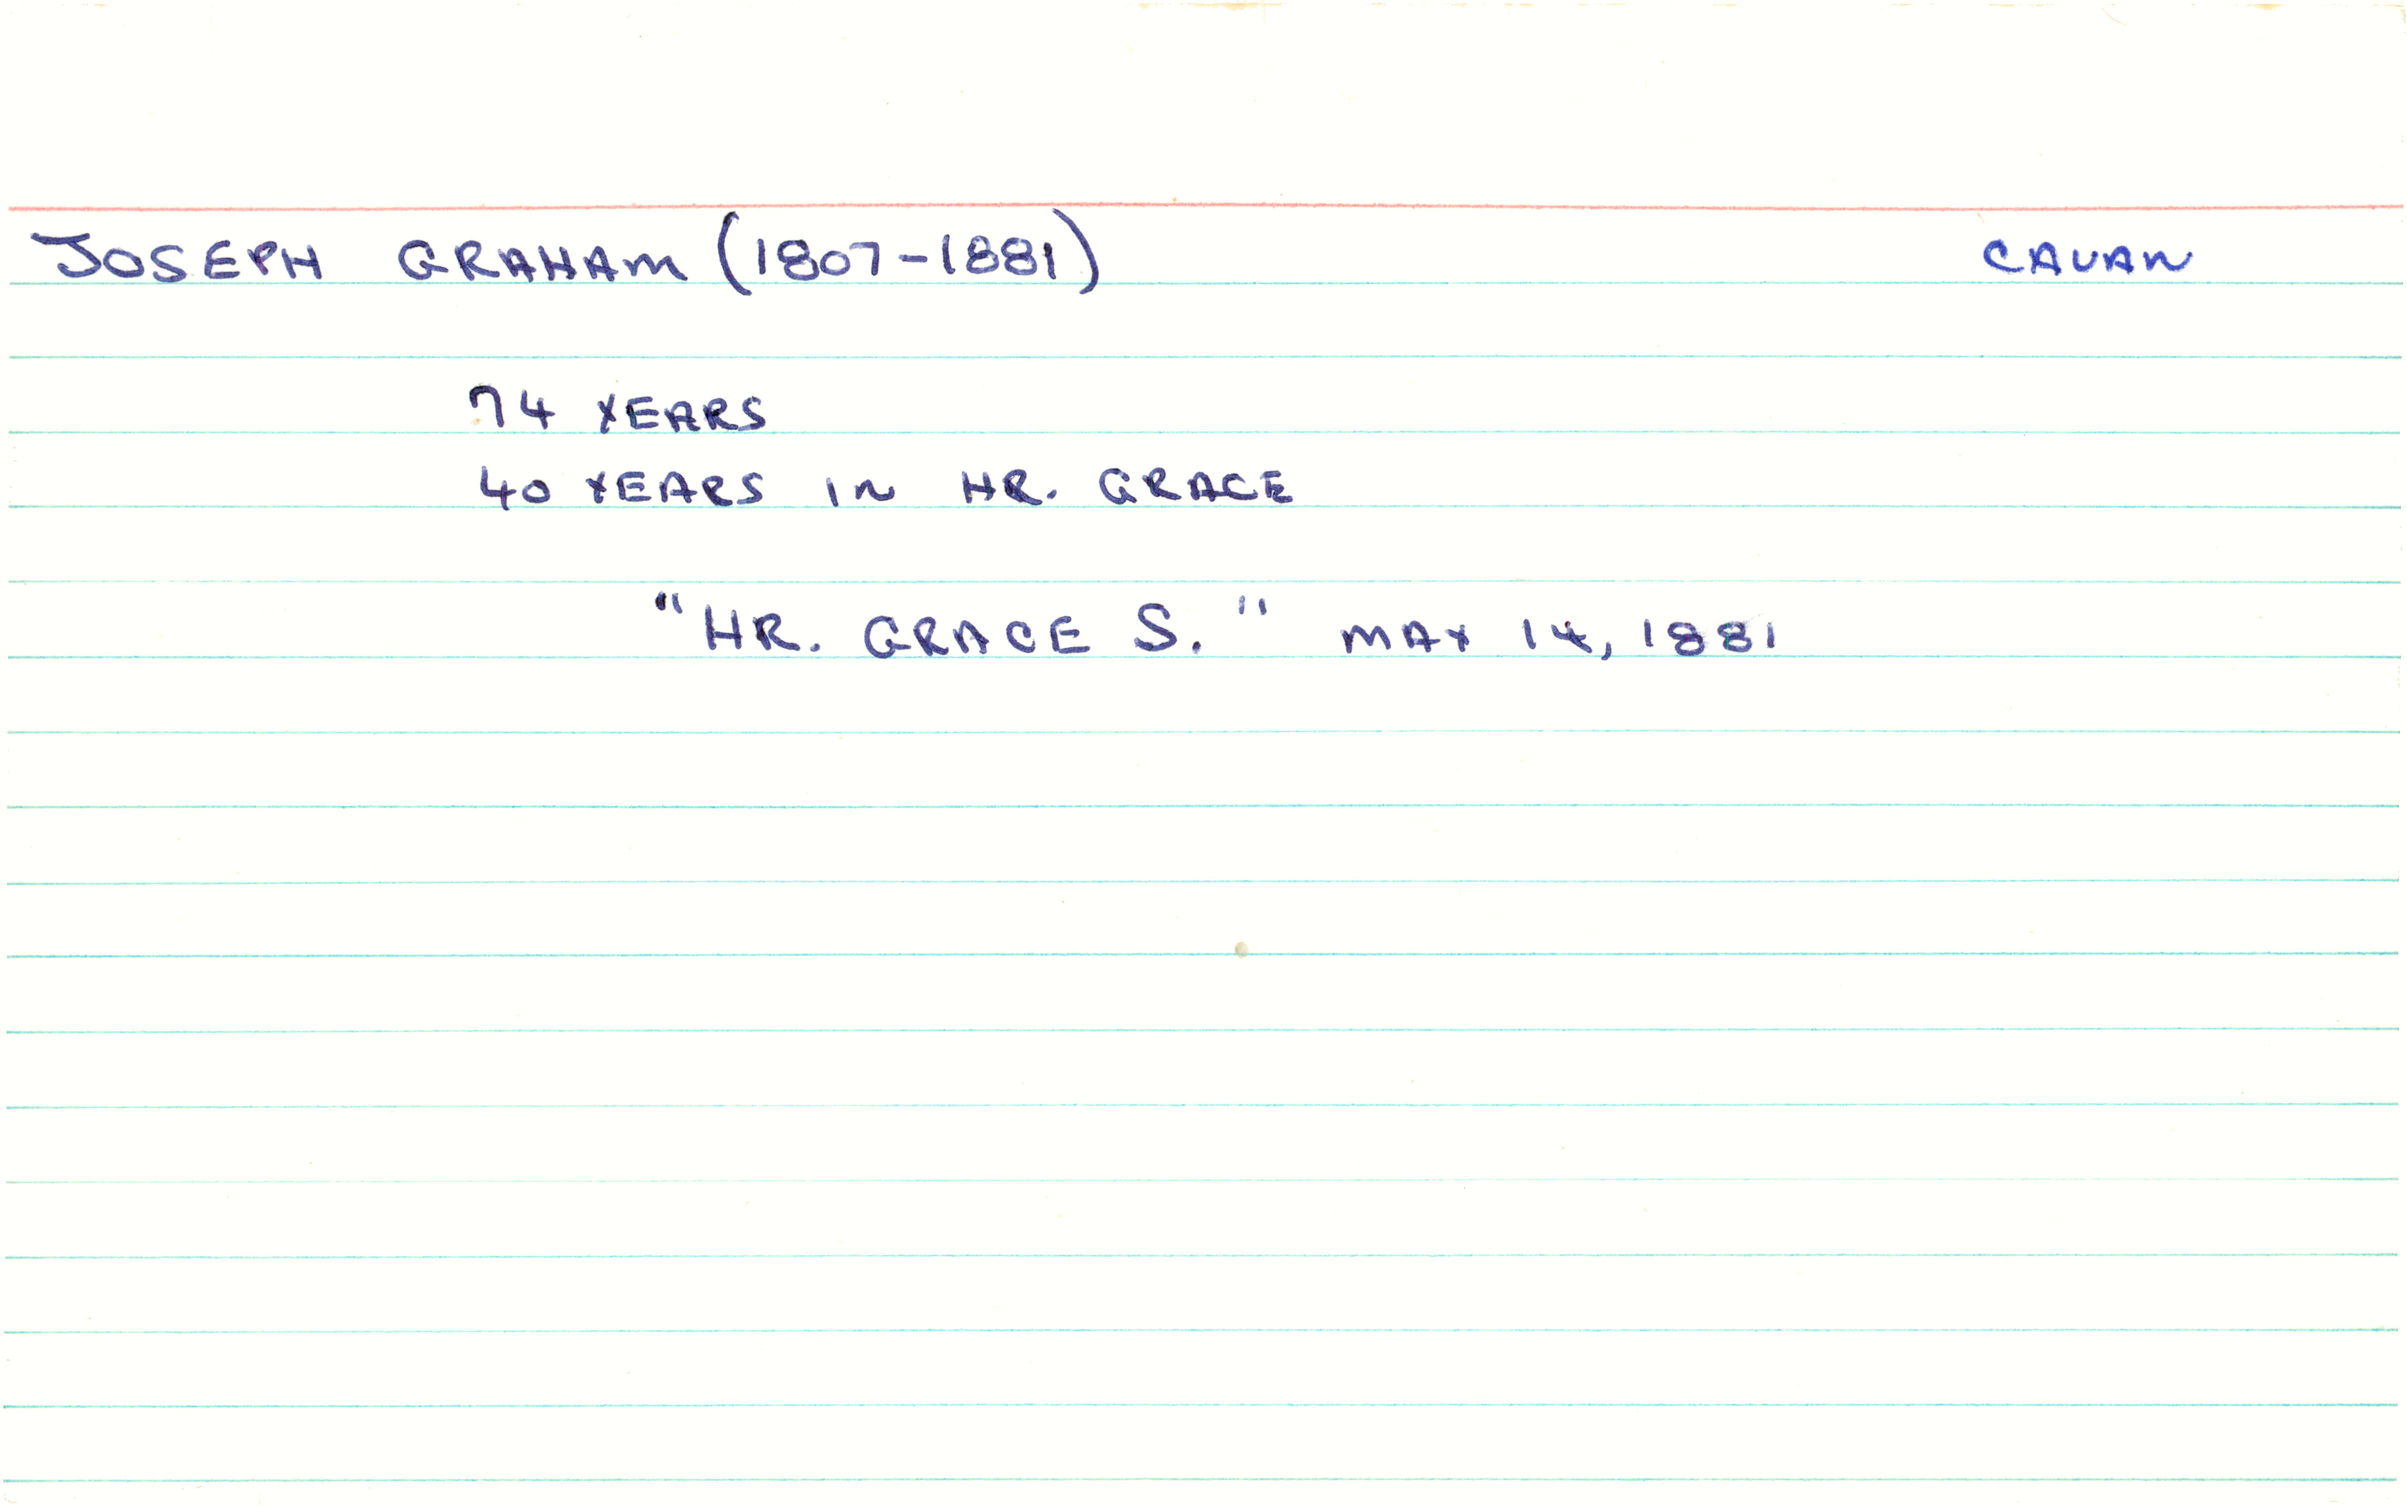 JOSEPH GRAHAM (1807-1881) CAVAN
74 YEARS
40 YEARS IN HR. GRACE
"HR. GRACE S." MAY 14, 1881